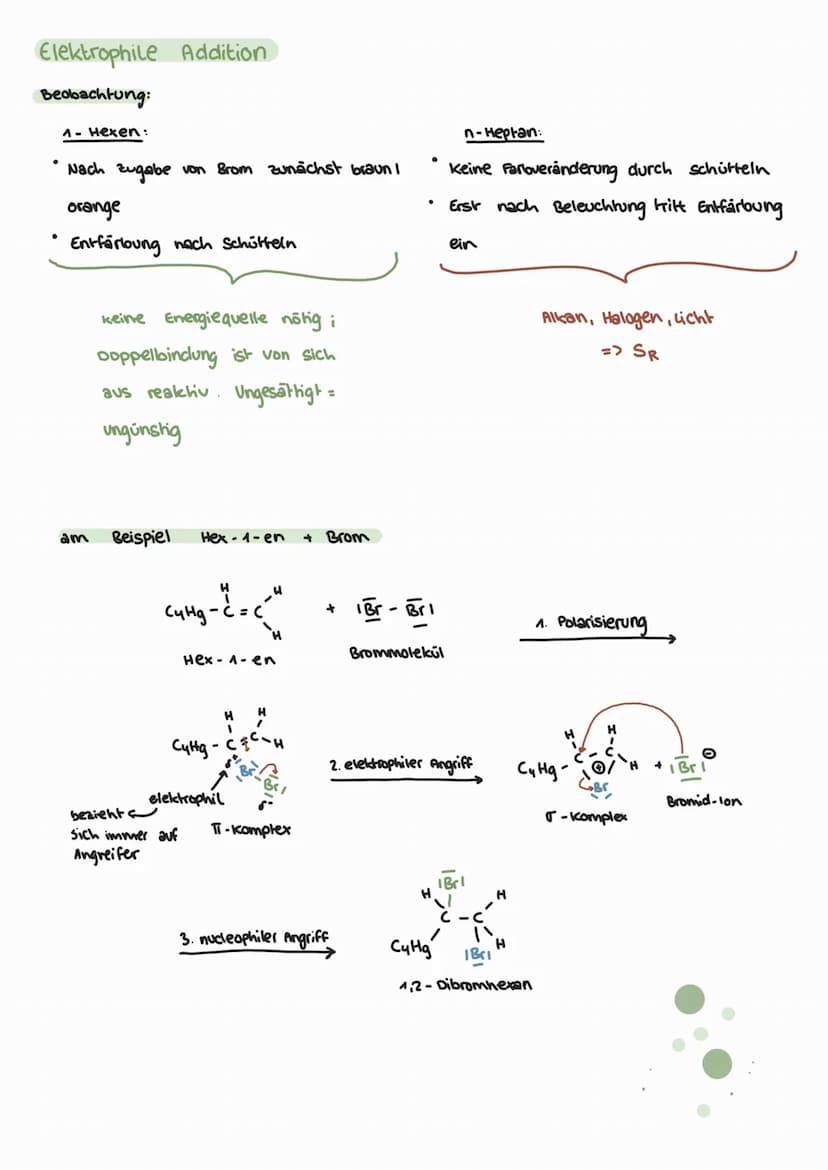 Elektrophile Addition
Beobachtung:
1- Hexen:
• Nach Zugabe von Brom zunächst braun |
orange
• Entfärbung nach Schütteln
keine Energiequelle nötig ;
Doppelbindung ist von sich
aus reaktiv. Ungesättigt =
ungünstig
n-Heptan:
• Keine Farbveränderung durch schütteln
• Erst nach Beleuchtung tritt Entfärbung
ein
Alkan, Halogen, Licht
=> SR
am Beispiel Hex-1-en + Brom
H
H
C4H9 - C = C
H
+ |Br - Br|
1. Polarisierung
Hex-1-en
Brommolekül
H H
C4H9 - C C - H
δ+
Br
Br
δ-
elektrophil
bezieht
sich immer auf
Angreifer
π-Komplex
2. elektrophiler Angriff
H H
C4H9 - C - C H
⊕
Br
+ |Br| ⊖
σ-Komplex
Bromid-Ion
3. nucleophiler Angriff
|Br|
H H
C - C
C4H9 H
|Br|
1,2-Dibromhexan